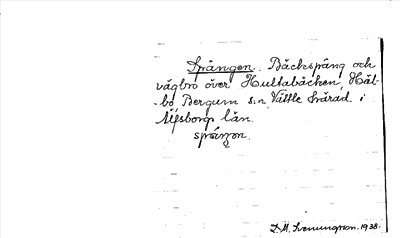 Spången. Bäckspång och
vägbro över Hultabäcken, Häl-
bo, Bergum s:n, Vättle härad i
Älfsborgs län.
spåŋən.
D.M. Svenungsson. 1938.